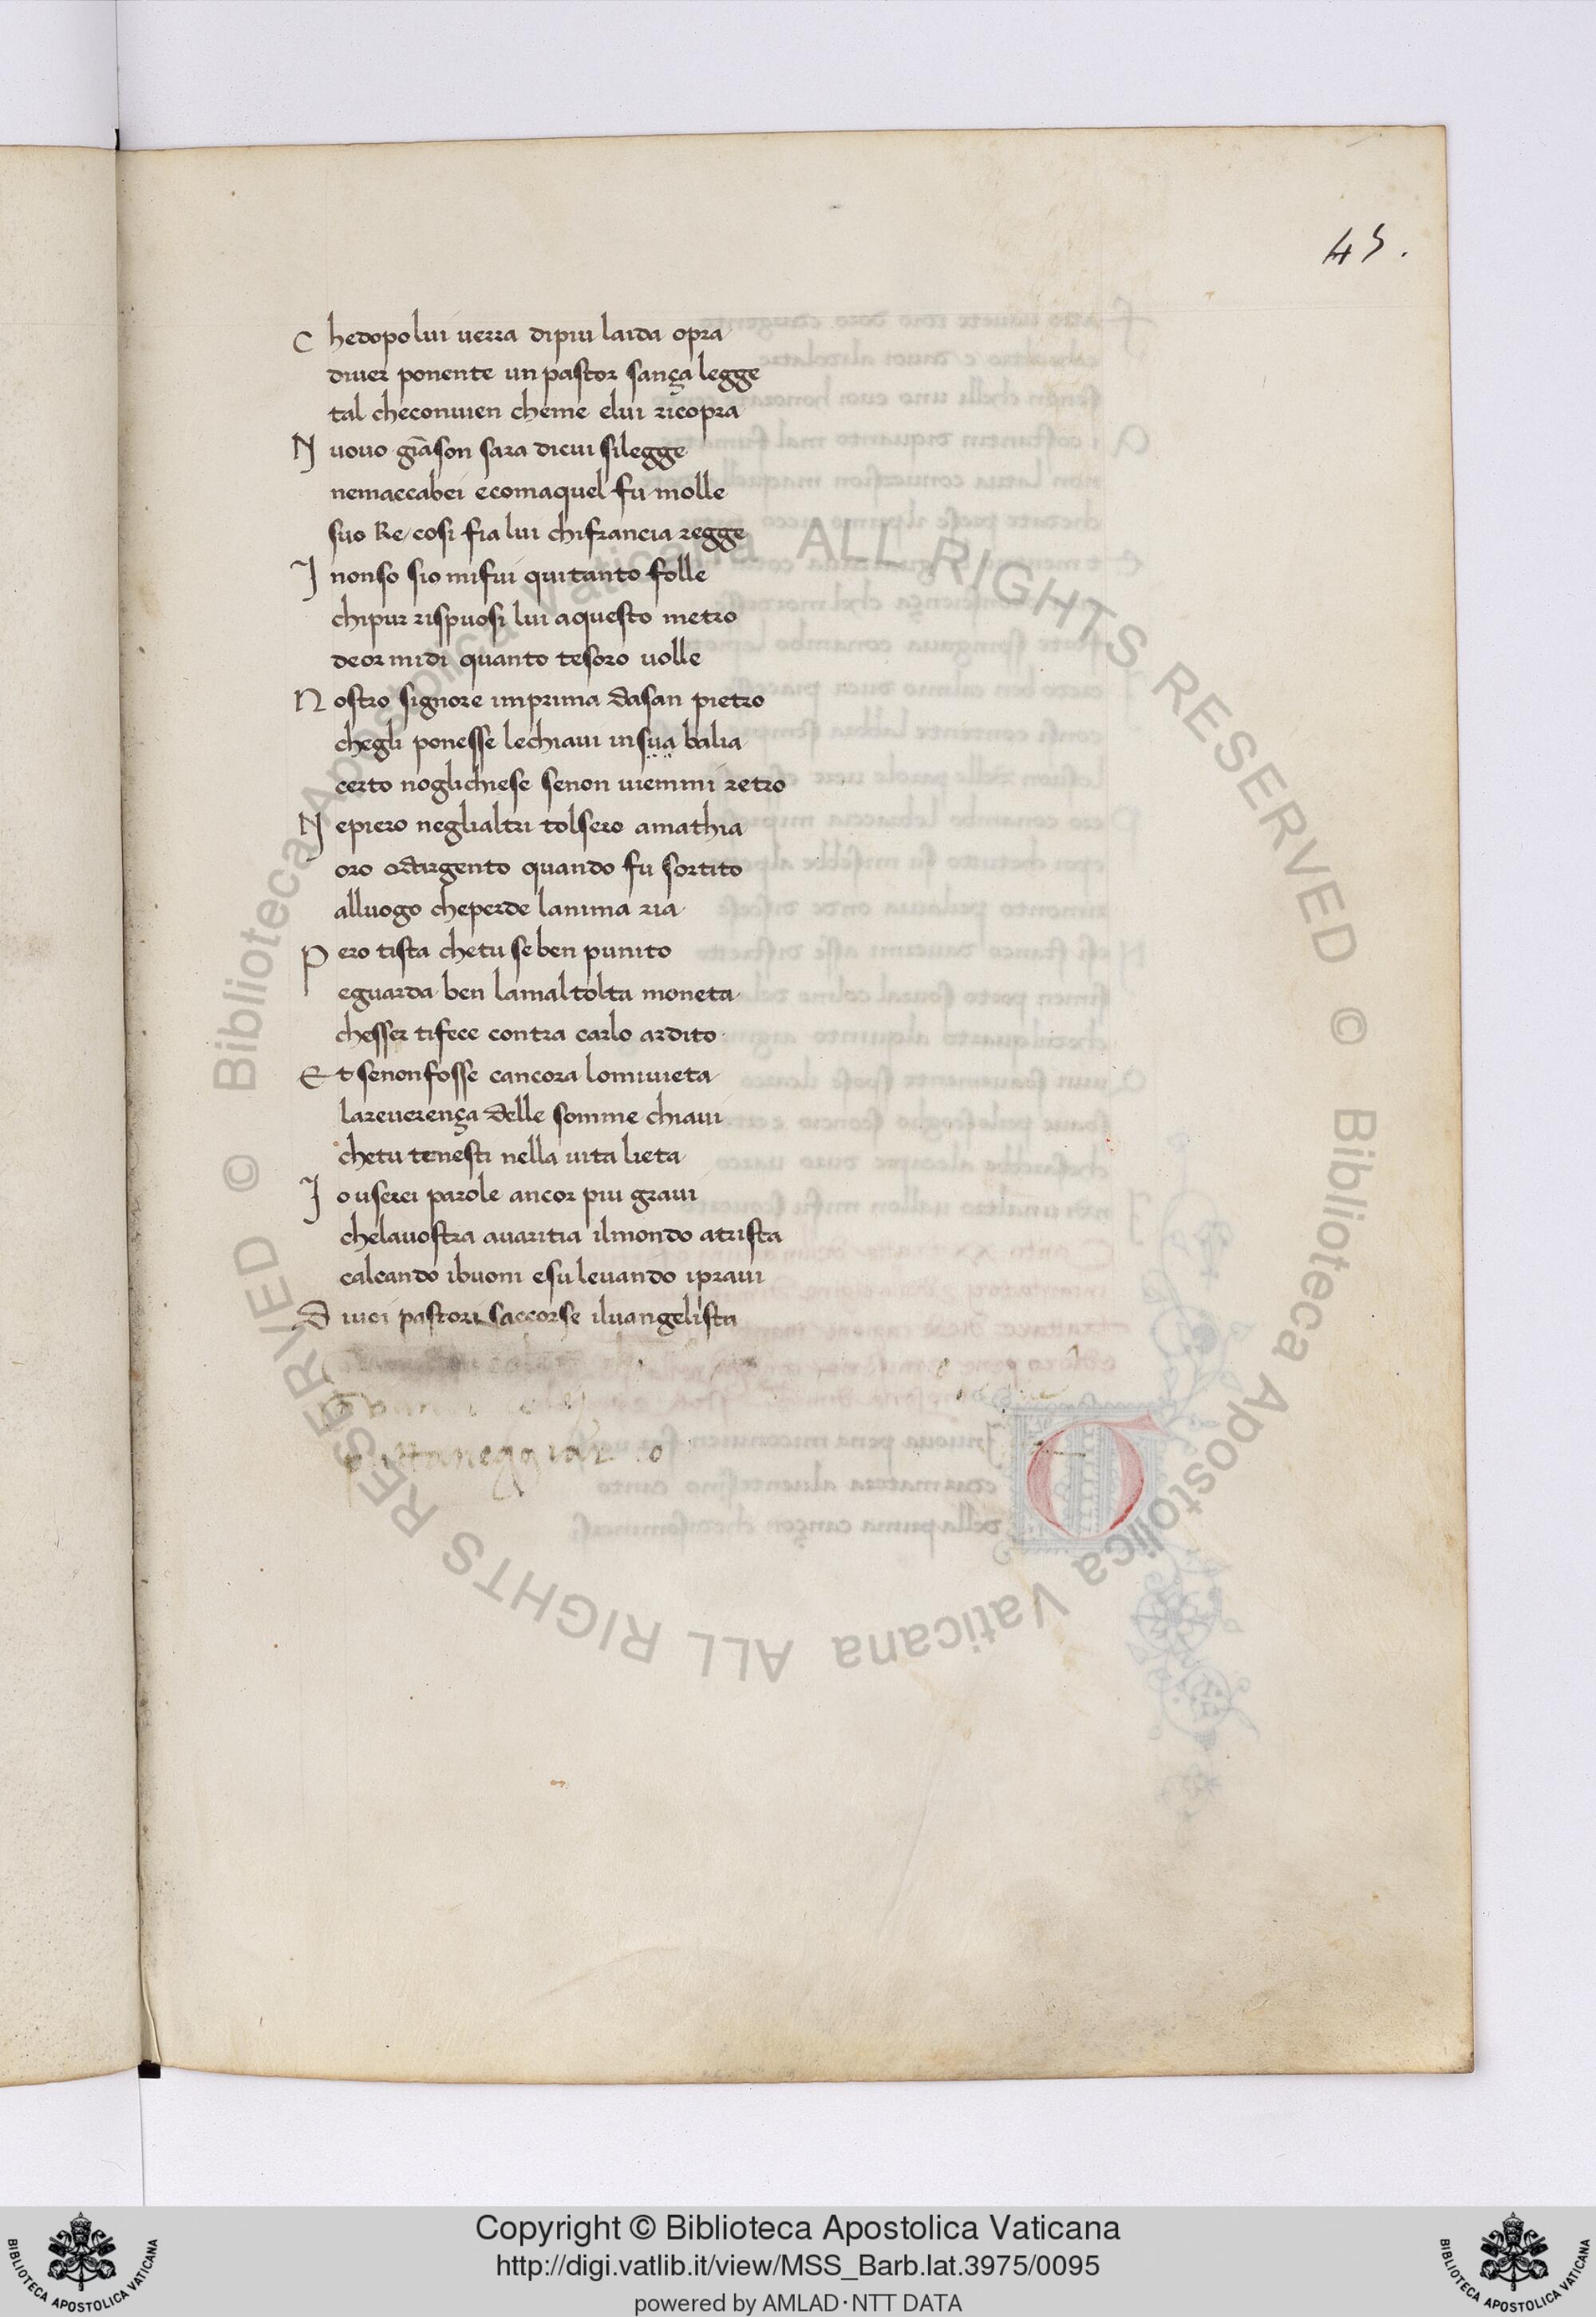 45.
C hedopo lui uerra dipiu laida opra
diuer ponente un pastor sança legge
tal checonuien cheme elui ricopra
N uouo giāson sara dicui silegge
nemaccabei ecomaquel fu molle
suo Re cosi fia lui chifrancia regge
I nonso sio mifui qui tanto folle
chipur rispuosi lui aquesto metro
deor midi quanto tesoro uolle
N ostro signore imprima dasan pietro
chegli ponesse lechiaui insua balia
certo noglichiese senon uiemmi retro
N epiero neglialtri tolsero amathia
oro odargento quando fu sortito
alluogo cheperde lanima ria
P ero tista chetu se ben punito
eguarda ben lamal tolta moneta
chesser tifece contra carlo ardito
E t senonfosse cancora lomiuieta
lareuerença delle somme chiaui
chetu tenesti nella uita lieta
I o userei parole ancor piu graui
chelauostra auaritia ilmondo atrista
calcando ibuoni esu leuando ipraui
D iuoi pastori saccorse iluangelista
Copyright © Biblioteca Apostolica Vaticana
http://digi.vatlib.it/view/MSS_Barb.lat.3975/0095
powered by AMLAD·NTT DATA
BIBLIOTECA APOSTOLICA VATICANA
BIBLIOTECA APOSTOLICA VATICANA
© Biblioteca Apostolica Vaticana ALL RIGHTS RESERVED © Biblioteca Apostolica Vaticana ALL RIGHTS RESERVED